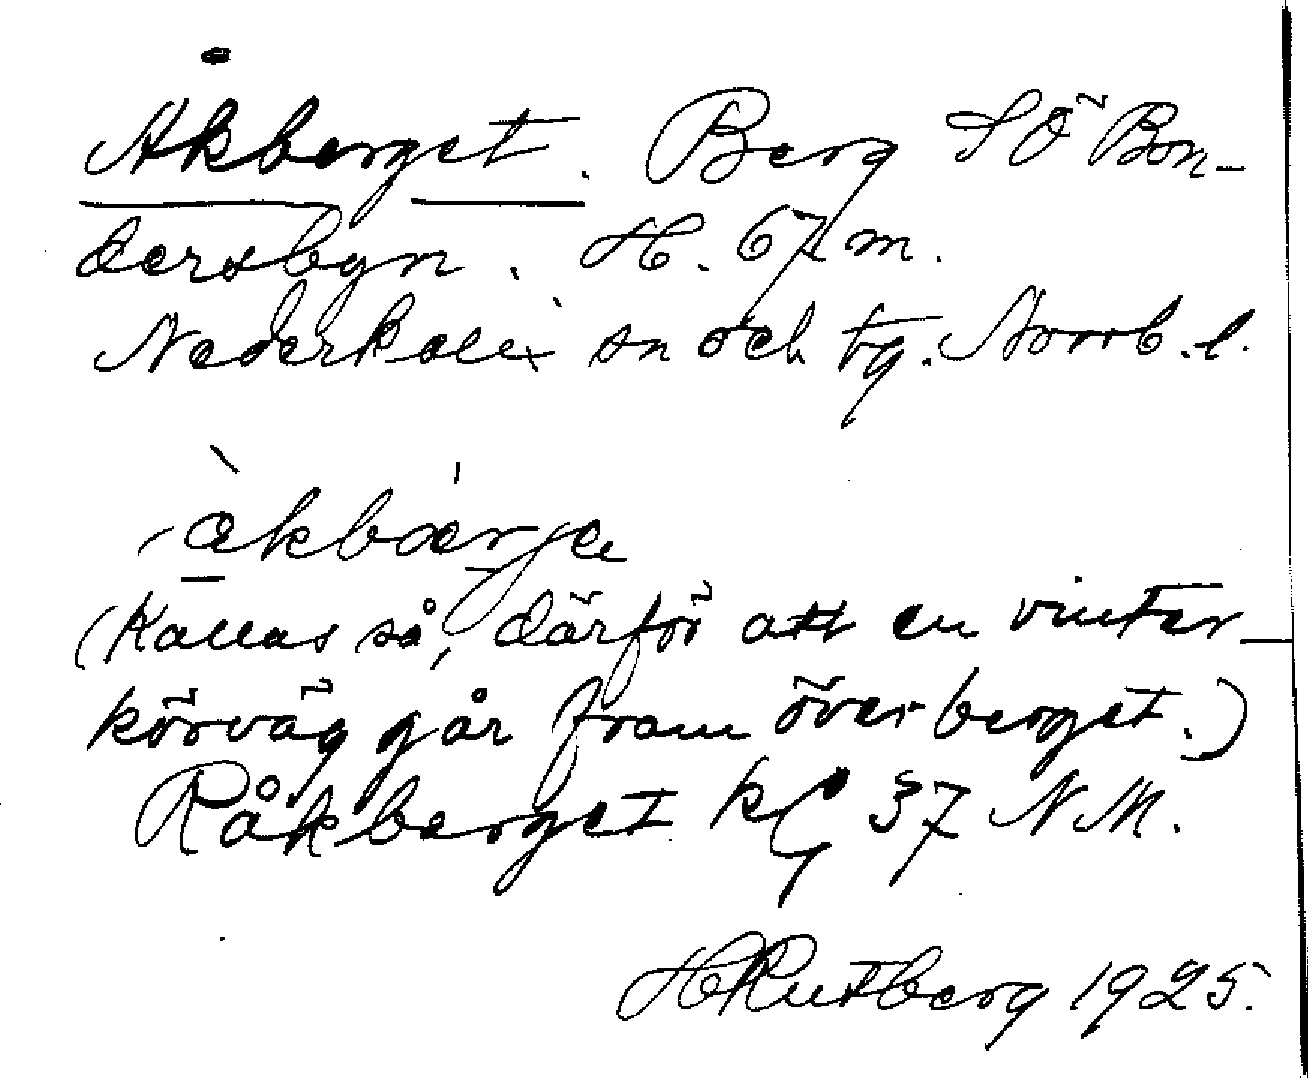 Åkberget. Berg SÖ Bon-
dersbyn. H. 67 m.
Nederkalix sn och tg. Norrb. l.
àkbærje
(Kallas så, därför att en vinter-
körväg går fram över berget.)
Råkberget kG 37 N M.
HRutberg 1925.